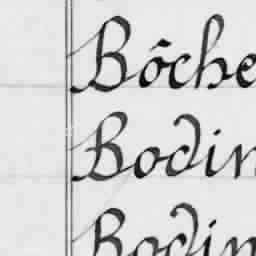 Bôche
Bodin
Bodin